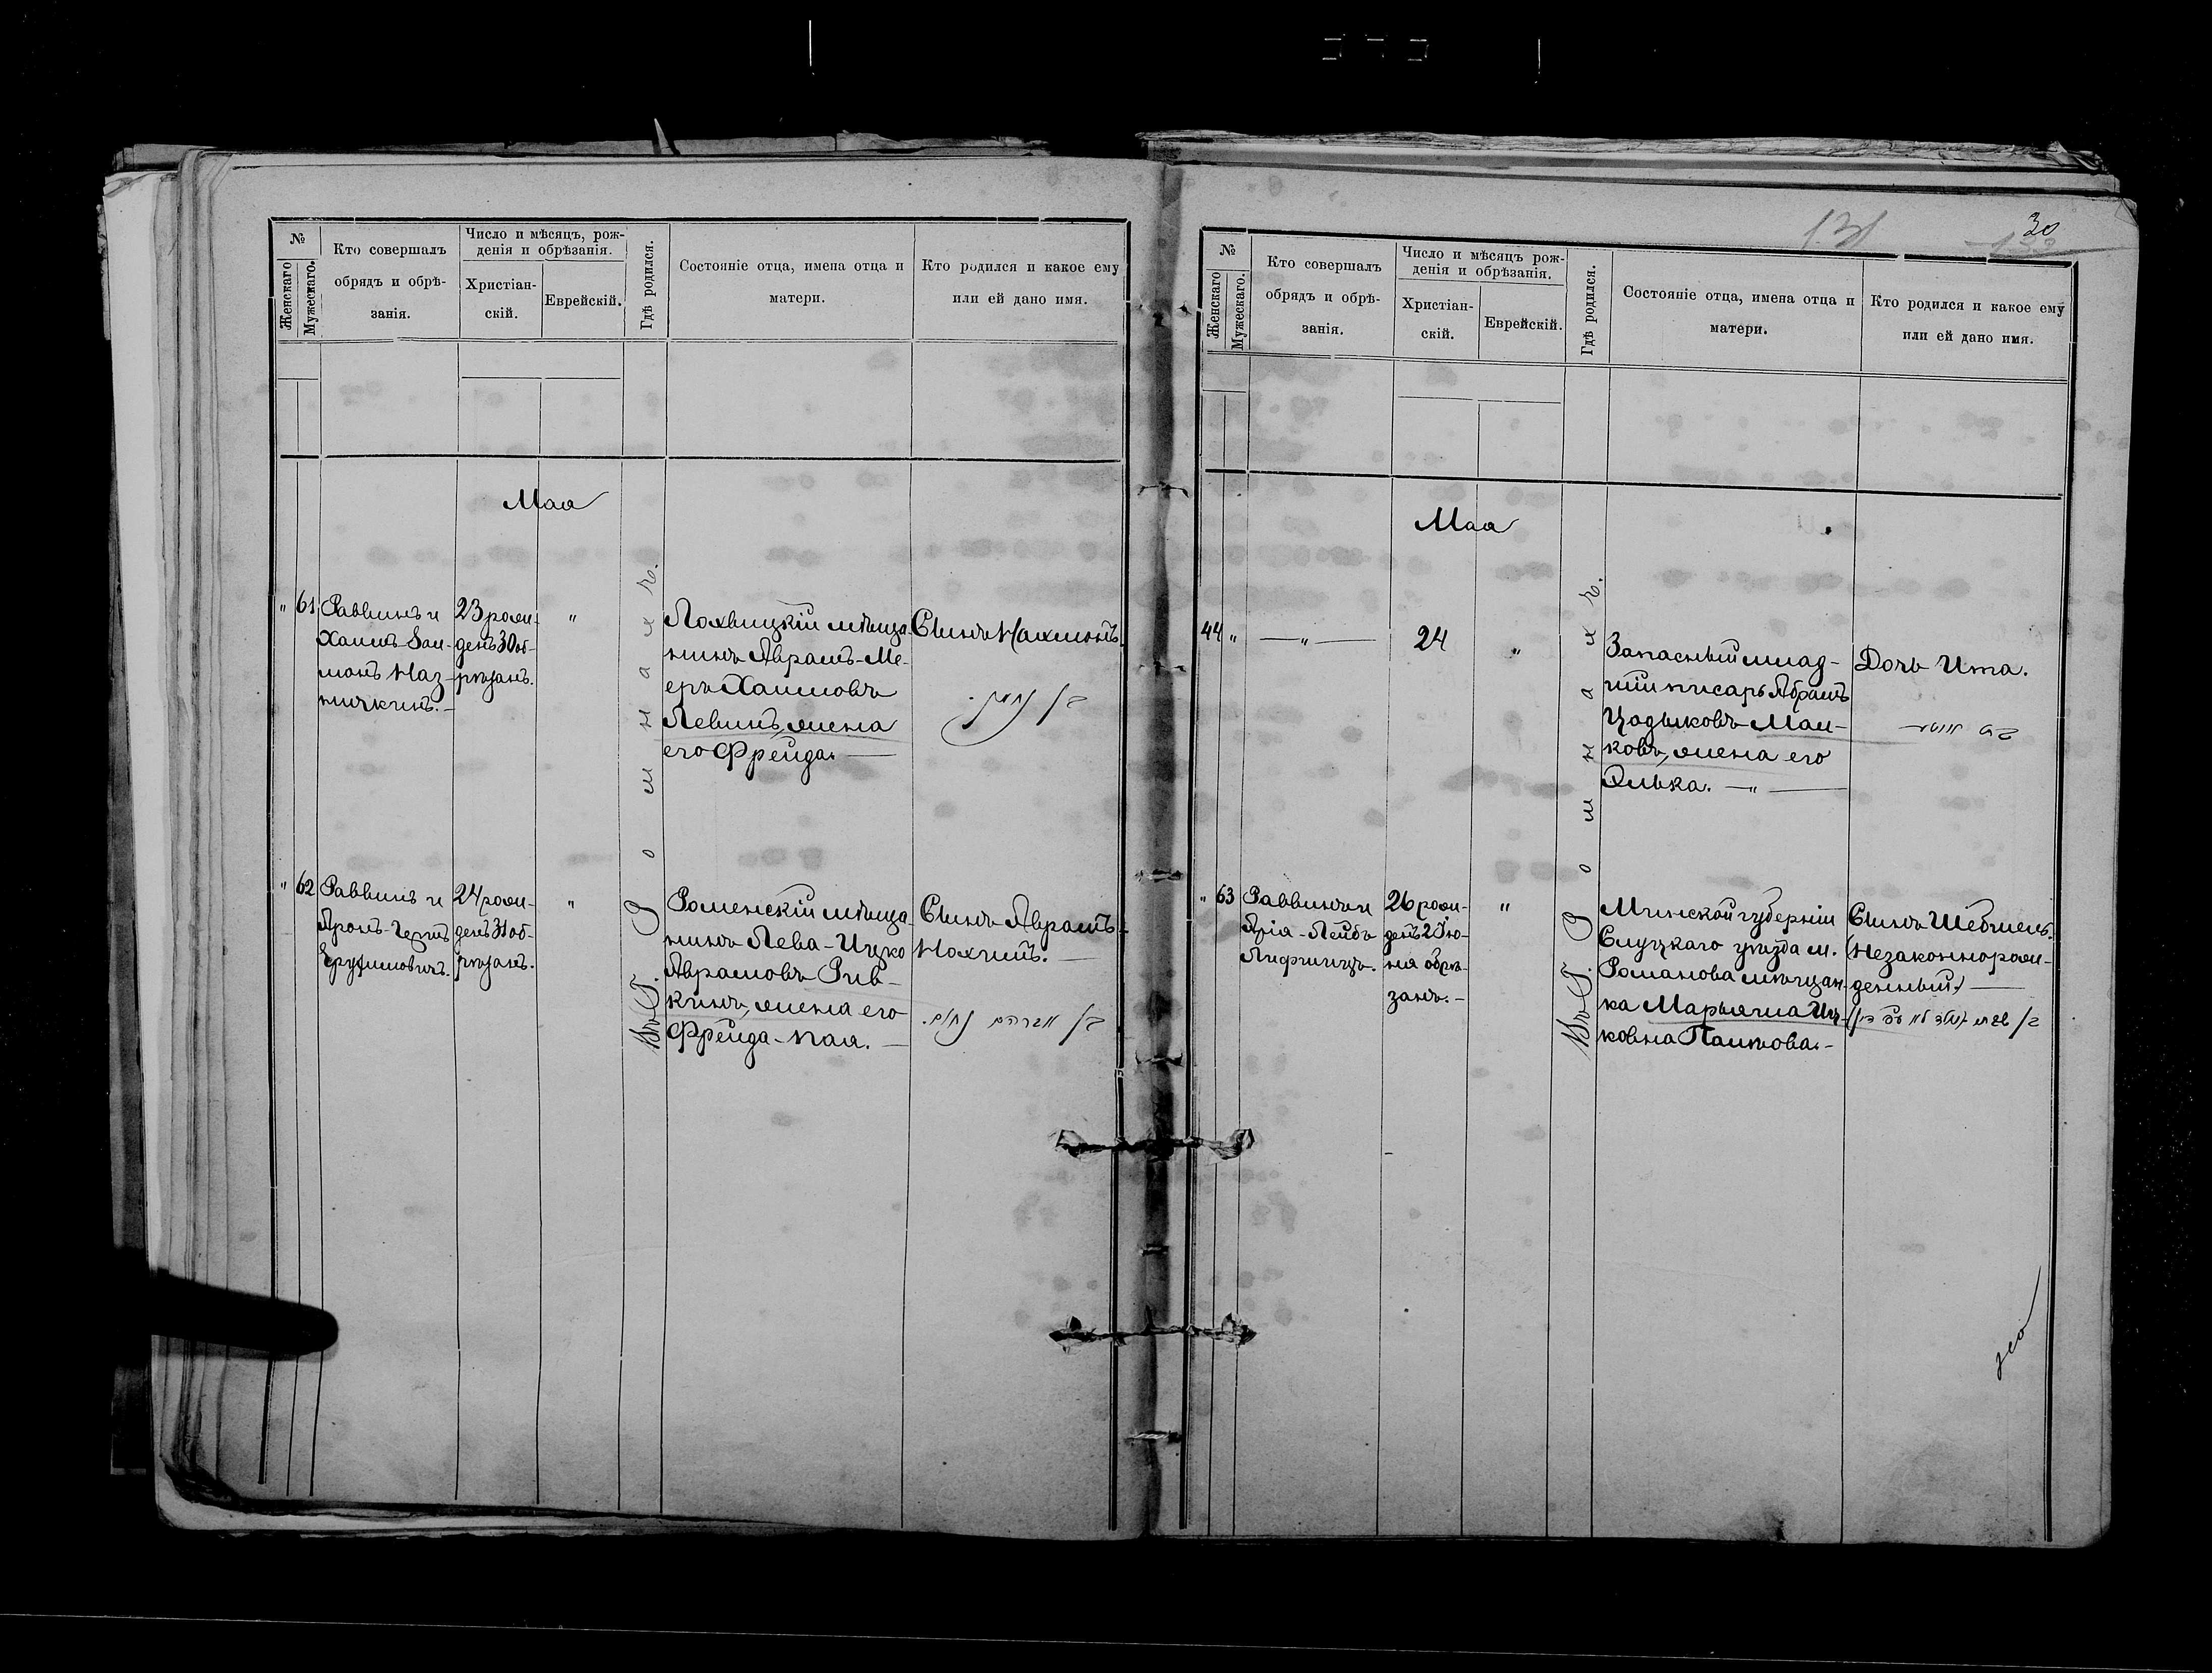 №
Женскаго
Мужескаго.
Кто совершалъ
обрядъ и обрѣ-
занія.
Число и мѣсяцъ, рож-
денія и обрѣзанія.
Христіан-
скій.
Еврейскій.
Гдѣ родился.
Состояніе отца, имена отца и
матери.
Кто родился и какое ему
или ей дано имя.
Мая
" 61
Раввинъ и
Хаимъ-Зал-
манъ Наз-
23 рож-
денъ 30 об-
рѣзанъ.
"
Лохвицкій мѣща-
нинъ Абрамъ-Ме-
еръ Хаимовъ
Левинъ, жена
его Фрейда. —
Сынъ Нахманъ.
בן נחמן.
" 62
Раввинъ и
Аронъ-
Ерухимовичъ.
24 рож-
денъ 31 об-
рѣзанъ.
"
Роменскій мѣща-
нинъ Лева-Ицко
Абрамовъ Рив-
кинъ, жена его
Фрейда-Пая. —
Сынъ Абрамъ-
Нохимъ. —
בן אברהם נחום.
Въ Г. Р о м н а х ъ.
131
30
№
Женскаго
Мужескаго.
Кто совершалъ
обрядъ и обрѣ-
занія.
Число и мѣсяцъ рож-
денія и обрѣзанія.
Христіан-
скій.
Еврейскій.
Гдѣ родился.
Состояніе отца, имена отца и
матери.
Кто родился и какое ему
или ей дано имя.
Мая
44 "
— " —
24
"
Запасный млад-
шій писарь Абрамъ
Цодыковъ Май-
ковъ, жена его
Элька. — " —
Дочь Ита.
בת איטה
" 63
Раввинъ и
Арія-Лейбъ
Лифшицъ.
26 рож-
денъ 2 Iю-
ня обрѣ-
занъ. —
"
Минской губерніи
Слуцкаго уѣзда м.
Романова мѣщан-
ка Марьяша Иц-
ковна Паикова. —
Сынъ Шебшель.
(Незаконнорож-
денный) —
Въ Г. Р о м н а х ъ.